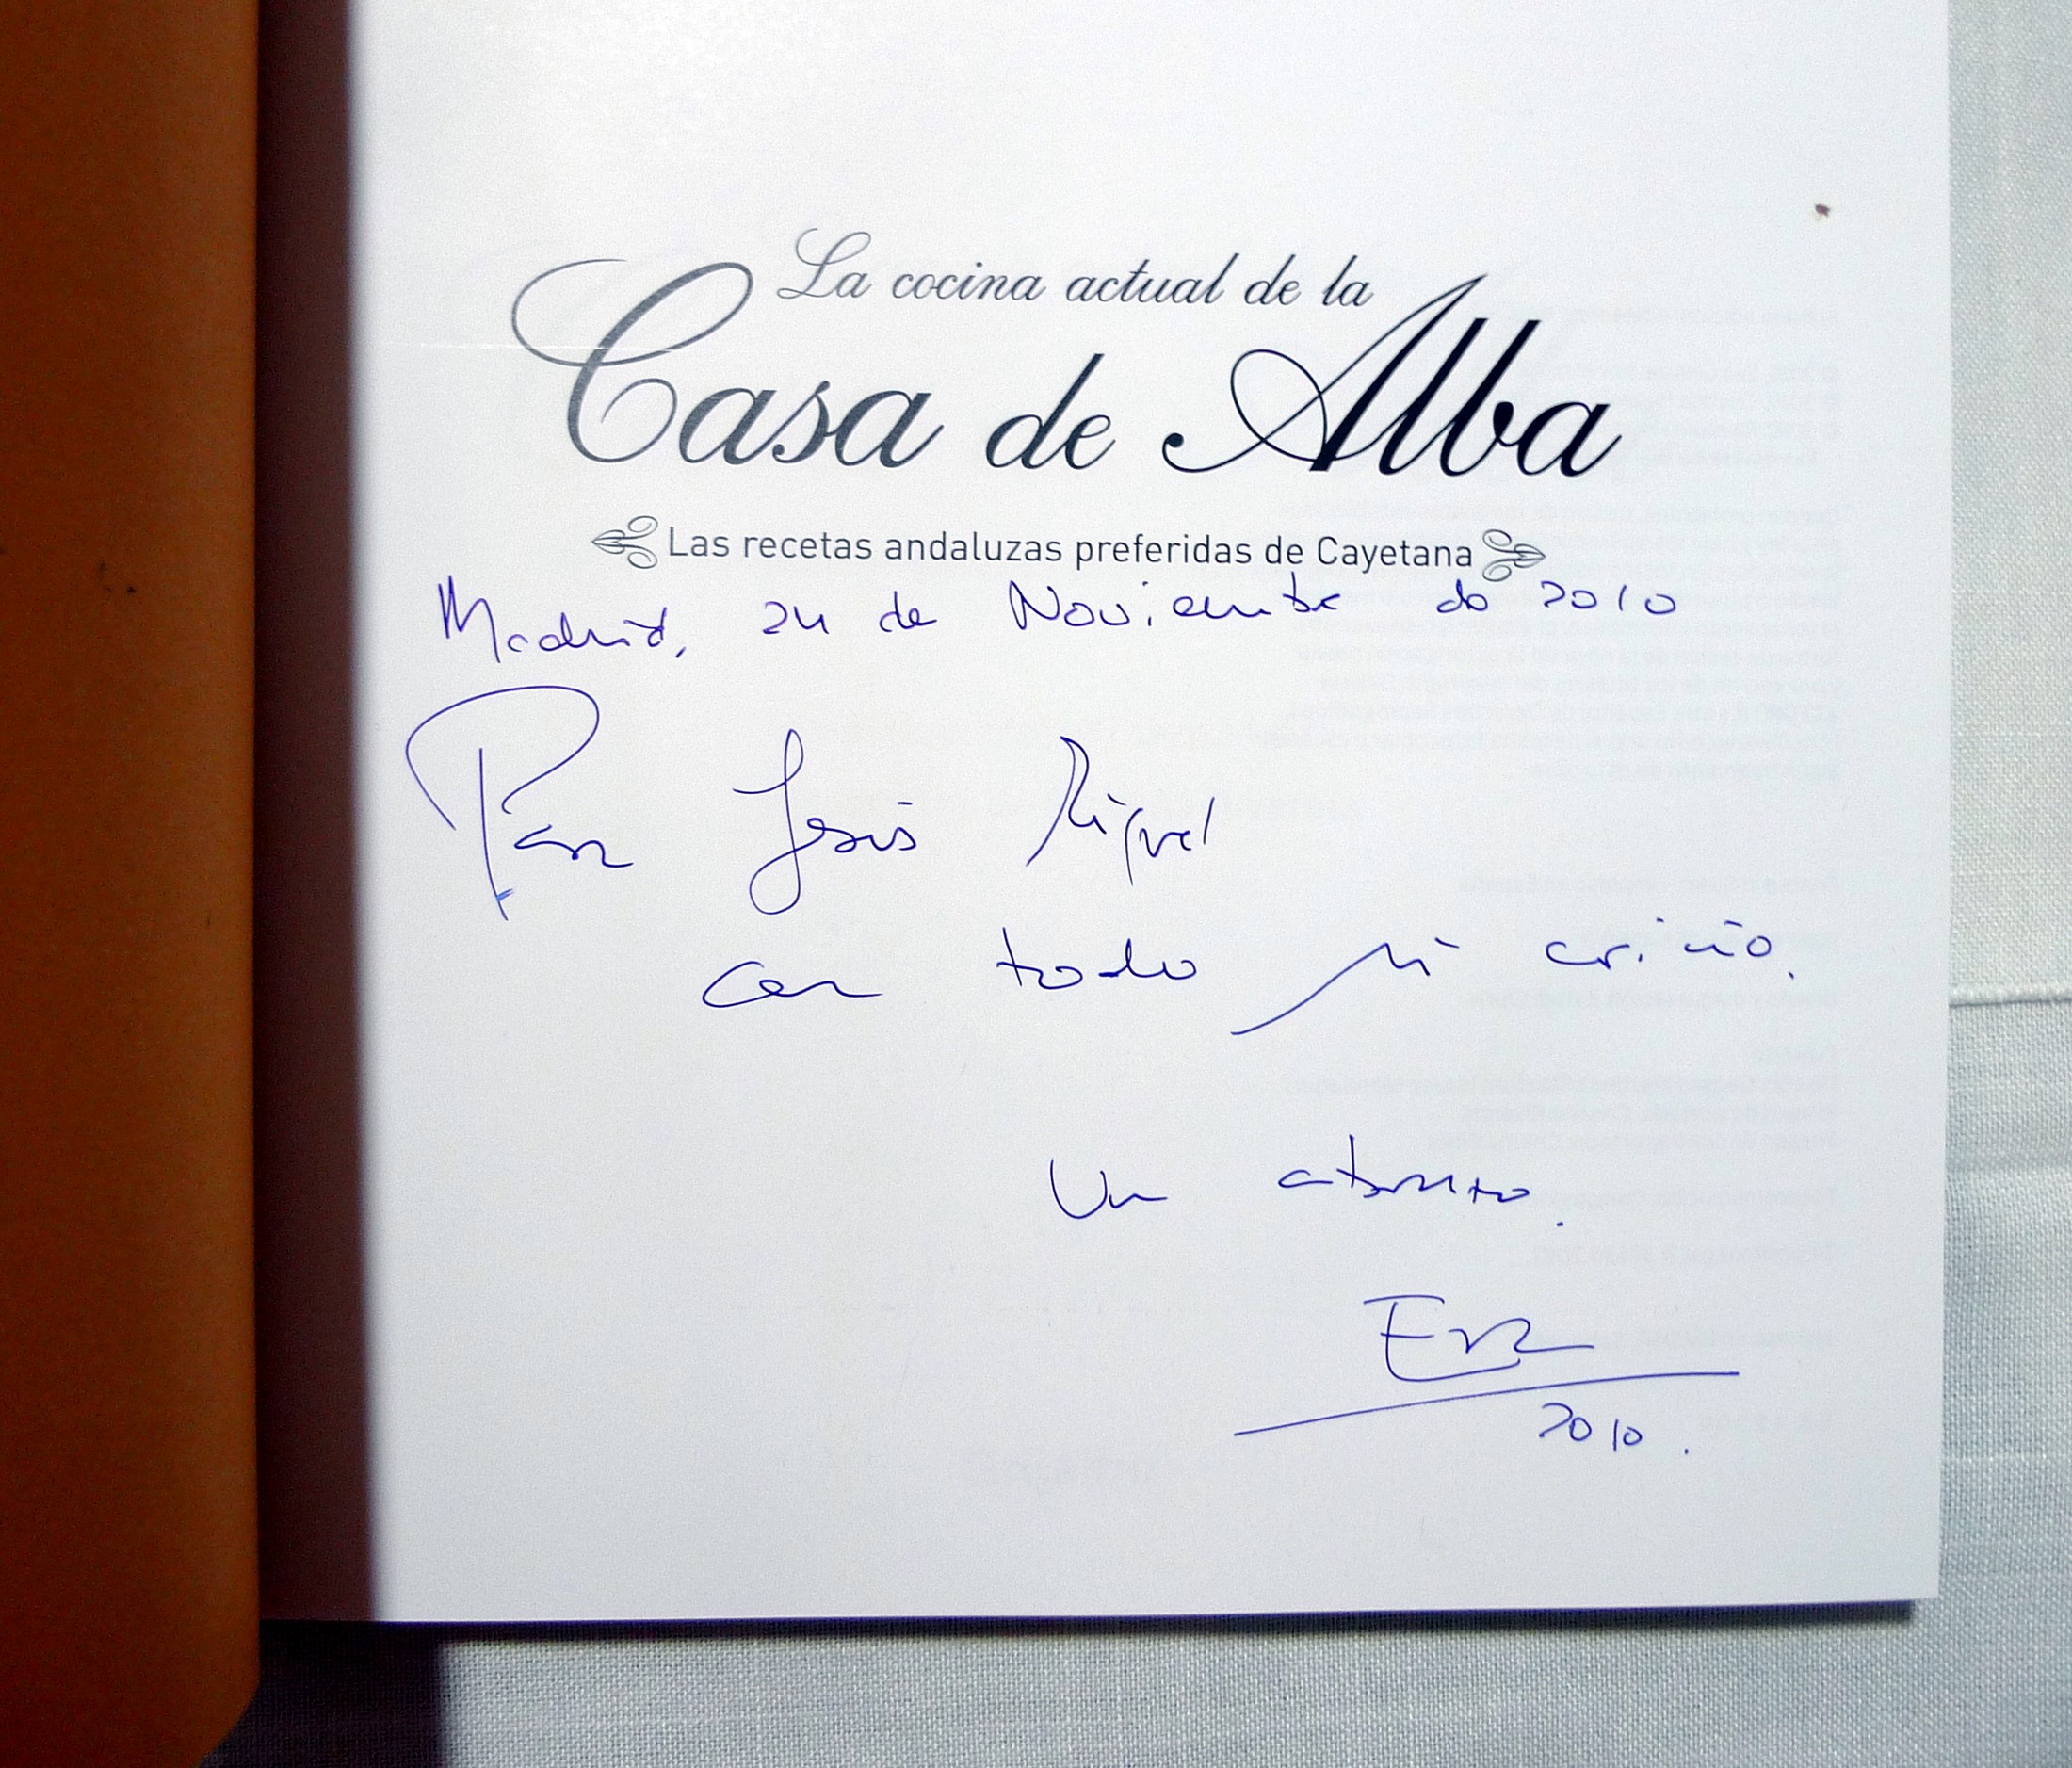 La cocina actual de la
Casa de Alba
Las recetas andaluzas preferidas de Cayetana
Madrid, 24 de Noviembre de 2010
Para Jesús Miguel
con todo mi cariño.
Un abrazo.
2010.